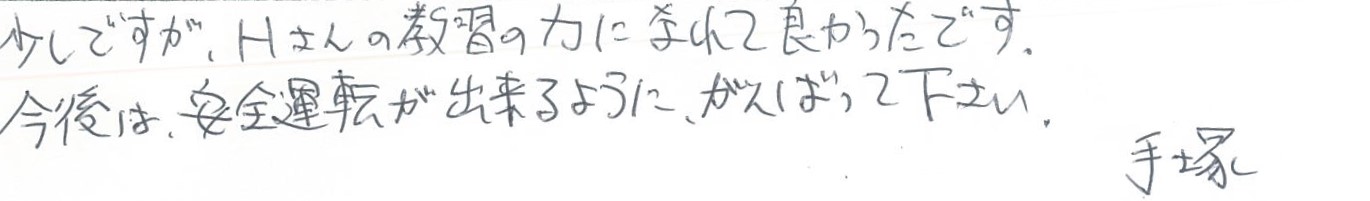 少しですが、Hさんの教習の力になれて良かったです。
今後は、安全運転が出来るように、がんばって下さい。
手塚